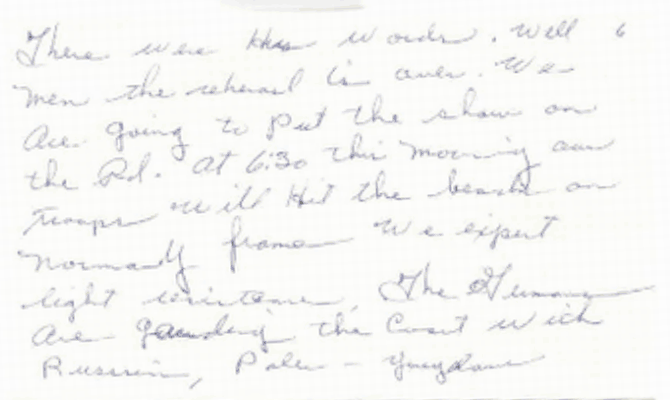 There were his words. Well 6
men the rehersal is over. We
are going to put the show on
the Rd. At 6:30 this morning our
troops will hit the beach on
Normandy france We expect
light resistance, The Germans
are gaurding the Coast with
Russian, Poles - Yugoslav